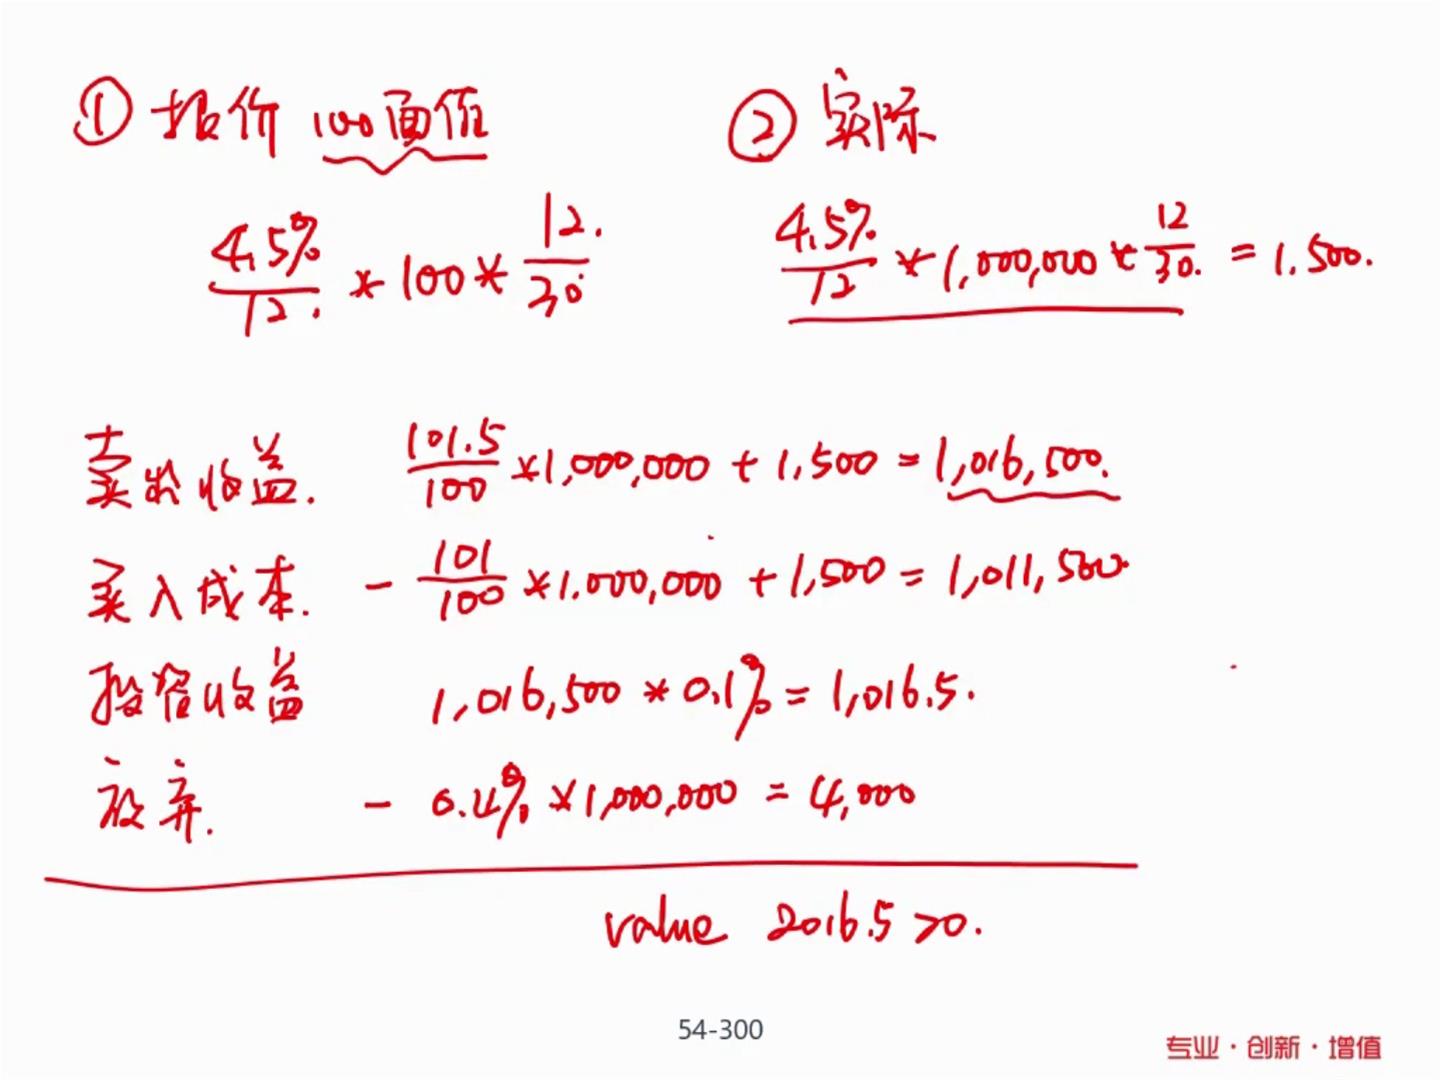 ① 报价 100面值
② 实际
4.5%/12. * 100 * 12./30
4.5%/12 * 1,000,000 * 12/30. = 1,500.
卖出收益. 101.5/100 * 1,000,000 + 1,500 = 1,016,500.
买入成本. - 101/100 * 1.000,000 + 1,500 = 1,011,500.
投资收益 1,016,500 * 0.1% = 1,016.5.
放弃. - 0.4% * 1,000,000 = 4,000
value 2016.5 >0.
54-300
专业·创新·增值